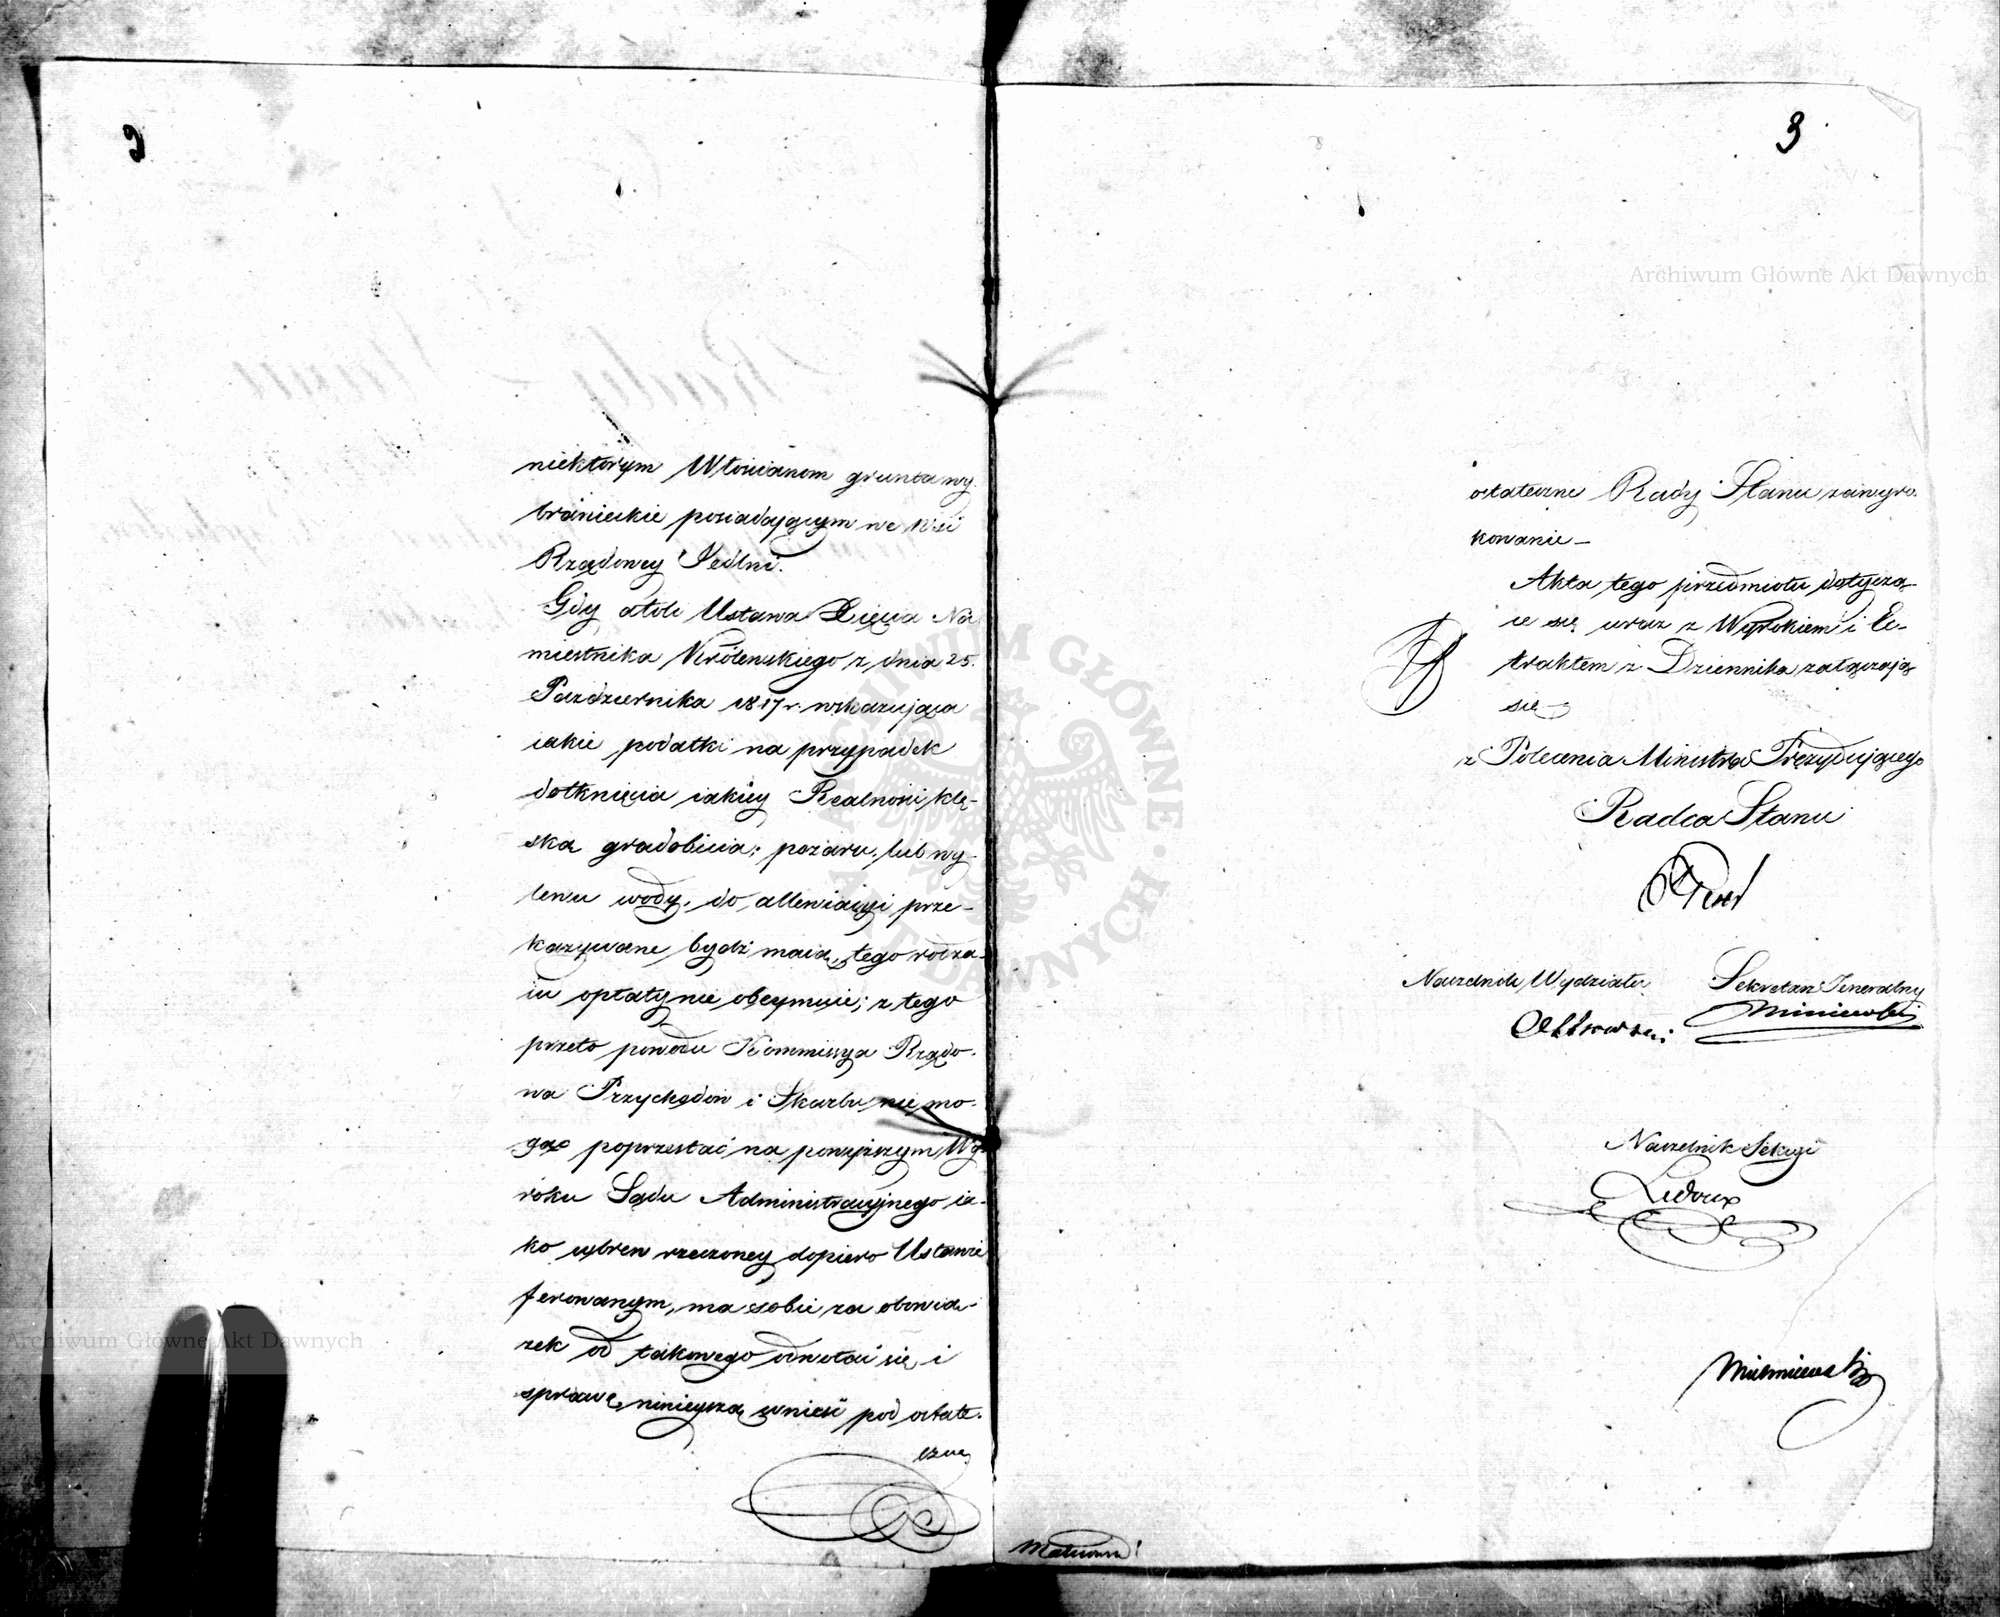 3
niektorym Włościanom grunta wy-
branieckie posiadającym we wsi
Rządowey Jedlni.
Gdy atoli Ustawa Xięcia Na
miestnika Królewskiego z dnia 25.
Pazdziernika 1817 r. wskazująca
iakie podatki na przypadek
dotknięcia iakiey Realności klę-
ską gradobicia, pożaru, lub wy-
lewu wody, do allewiacyi prze-
kazywane bydź maią, tego rodza-
iu opłaty nie obeymuie; z tego
przeto powodu Kommissya Rządo-
wa Przychodów i Skarbu nie mo-
gąc poprzestać na powyższym Wy
roku Sądu Administracyjnego ia-
ko wbrew rzeczoney dopiero Ustawie
ferowanym, ma sobie za obowią-
zek od takowego odwołać się i
sprawę ninieyszą wnieść pod ostate-
czne
3
ostateczne Rady Stanu zawyro-
kowanie –
Akta tego przedmiotu dotyczą-
ce się wraz z Wyrokiem i Ex-
traktem z Dziennika załączają
się
z Polecenia Ministra Prezydującego
Radca Stanu
Naczelnik Wydziału
Sekretarz Jeneralny
Naczelnik Sekcyi
Ledoux
Archiwum Główne Akt Dawnych
Archiwum Główne Akt Dawnych
ARCHIWUM GŁÓWNE · AKT DAWNYCH ·